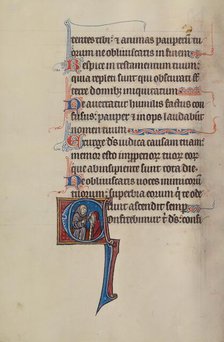 tentes tibi: & animas pauperum tu
orum ne obliuiscaris in finem
Respice in testamentum tuum:
quia repleti sunt qui obscurati st
terre domibz iniquitatum
Ne auertatur humilis factus con
fusus: pauper & inops laudabūt
nomen tuum
Exurge ds iudica causam tuam:
memor esto improperiorum tuorum eor
que ab insipiente sunt tota die
Ne obliuiscaris uoces inimicorum
tuorum: superbia eorum qui te ode
runt ascendit semp
Confitebimur ti ds: confi